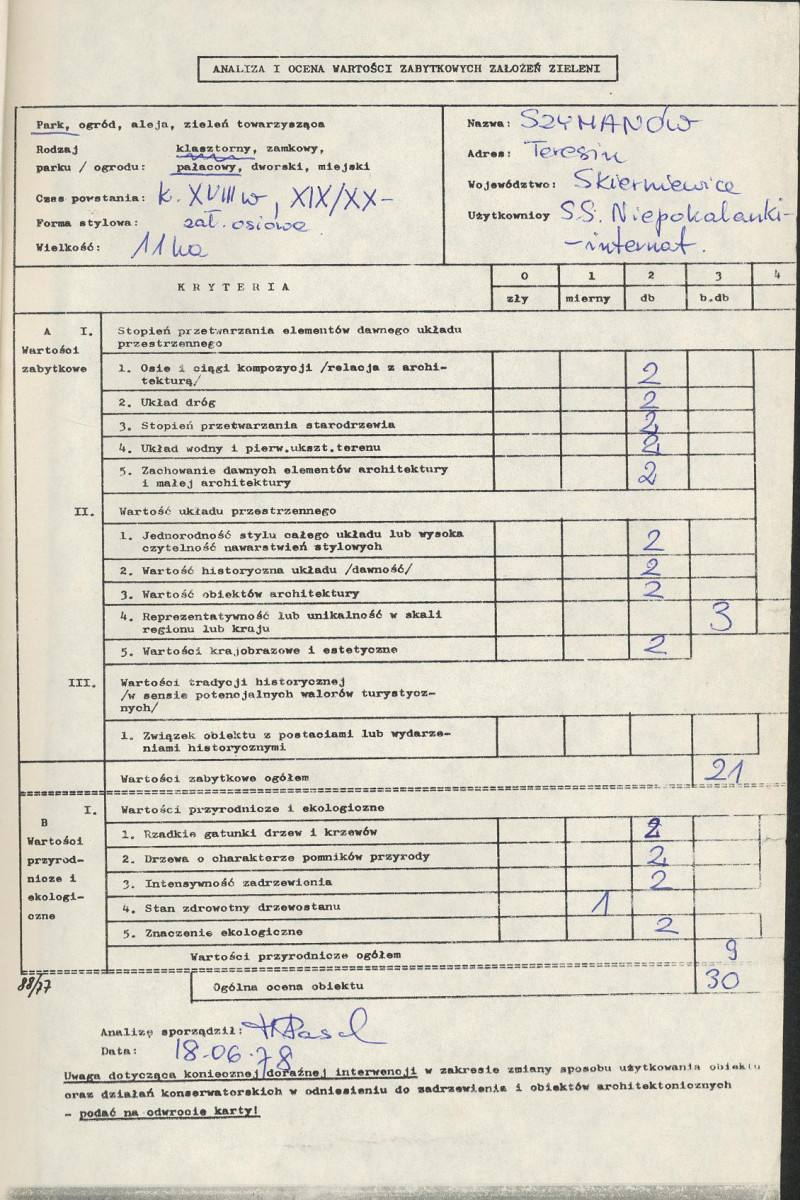 ANALIZA I OCENA WARTOŚCI ZABYTKOWYCH ZAŁOŻEŃ ZIELENI
Park, ogród, aleja, zieleń towarzysząca
Rodzaj klasztorny, zamkowy,
parku / ogrodu: pałacowy, dworski, miejski
Czas powstania: k. XVIII w, XIX/XX-
Forma stylowa: zał. osiowe
Wielkość: 11 ha
Nazwa: SZYMANÓW
Adres: Teresin
Województwo: Skierniewice
Użytkownicy S.S. Niepokalanki-
-internat.
KRYTERIA
0 1 2 3 4
zły mierny db b.db
A I. Stopień przetwarzania elementów dawnego układu
Wartości przestrzennego
zabytkowe 1. Osie i ciągi kompozycji /relacja z archi-
tekturą/ 2
2. Układ dróg 2
3. Stopień przetwarzania starodrzewia 2
4. Układ wodny i pierw.ukszt.terenu 2
5. Zachowanie dawnych elementów architektury
i małej architektury 2
II. Wartość układu przestrzennego
1. Jednorodność stylu całego układu lub wysoka
czytelność nawarstwień stylowych 2
2. Wartość historyczna układu /dawność/ 2
3. Wartość obiektów architektury 2
4. Reprezentatywność lub unikalność w skali
regionu lub kraju 3
5. Wartości krajobrazowe i estetyczne 2
III. Wartości tradycji historycznej
/w sensie potencjalnych walorów turystycz-
nych/
1. Związek obiektu z postaciami lub wydarze-
niami historycznymi
Wartości zabytkowe ogółem 21
B I. Wartości przyrodnicze i ekologiczne
Wartości 1. Rzadkie gatunki drzew i krzewów 2
przyrod- 2. Drzewa o charakterze pomników przyrody 2
nicze i 3. Intensywność zadrzewienia 2
ekologi- 4. Stan zdrowotny drzewostanu 1
czne 5. Znaczenie ekologiczne 2
Wartości przyrodnicze ogółem 9
88/77
Ogólna ocena obiektu 30
Analizę sporządził:
Data: 18-06-78
Uwaga dotycząca koniecznej doraźnej interwencji w zakresie zmiany sposobu użytkowania obiektu
oraz działań konserwatorskich w odniesieniu do zadrzewienia i obiektów architektonicznych
- podać na odwrocie karty!